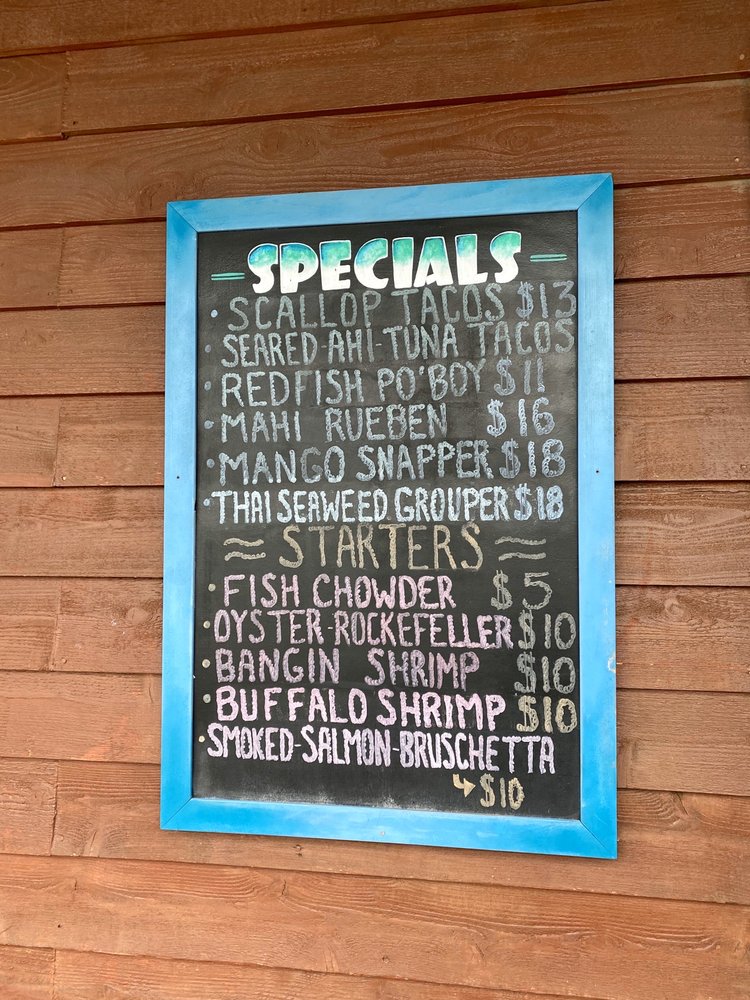 - SPECIALS -
• SCALLOP TACOS $13
• SEARED-AHI-TUNA TACOS
• REDFISH PO'BOY $11
• MAHI RUEBEN $16
• MANGO SNAPPER $18
• THAI SEAWEED GROUPER $18
≈ STARTERS ≈
• FISH CHOWDER $5
• OYSTER-ROCKEFELLER $10
• BANGIN SHRIMP $10
• BUFFALO SHRIMP $10
• SMOKED-SALMON-BRUSCHETTA
↳ $10